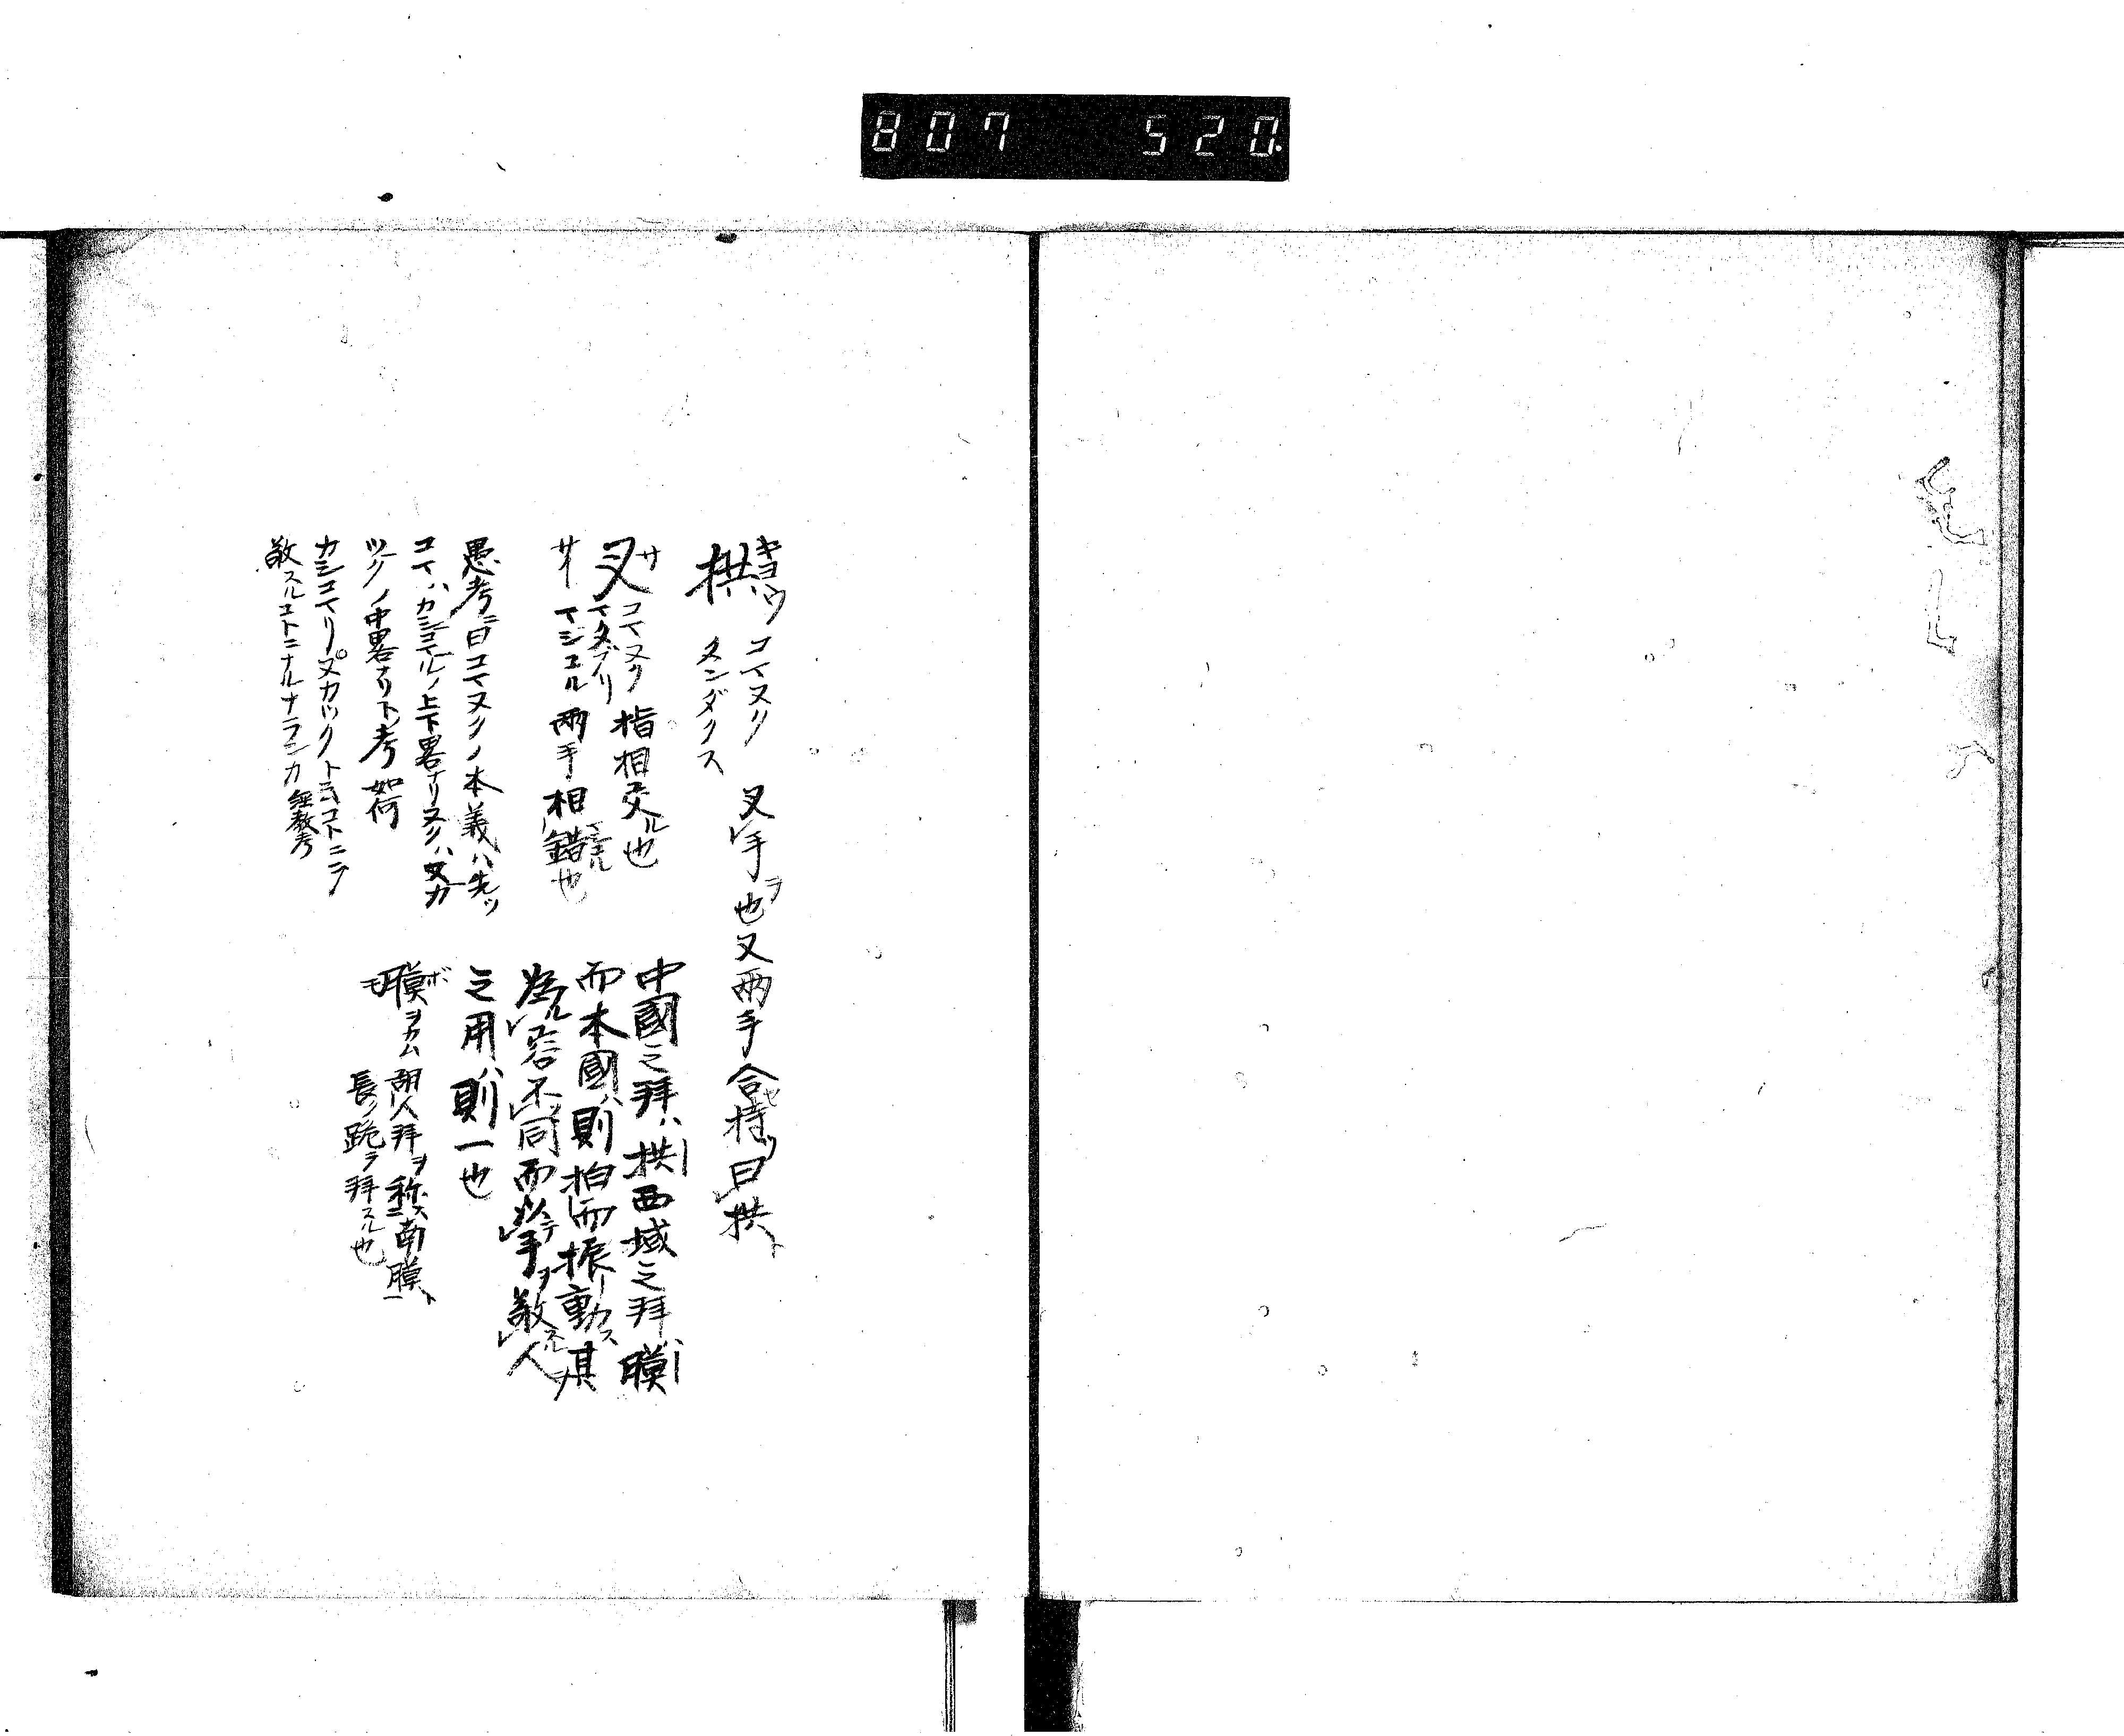 807 520.
拱 キョウ コマヌク タンダクス 叉手ヲ也又両手合セ持ツ曰拱ト
叉 サ コマヌク 指相交ル也
サイ マジユル 両手相錯也
愚考ニ曰コマヌクノ本義ハ先ツ
コマハカシコマルノ上下畧ナリヌクハヌカ
ツクノ中畧ナリト考如何
カシコマリヌカツクト云コトニテ
敬スルコトニナルナランカ
中國之拜ハ拱西域之拜ハ膜
而本國ハ則拍而振動ス其
為ル容不同而以テ手ヲ敬スル人ヲ
之用ハ則一也
膜 ボ モ ヲカム 胡人拜ヲ称ス南膜ト
長ク跪テ拜スル也